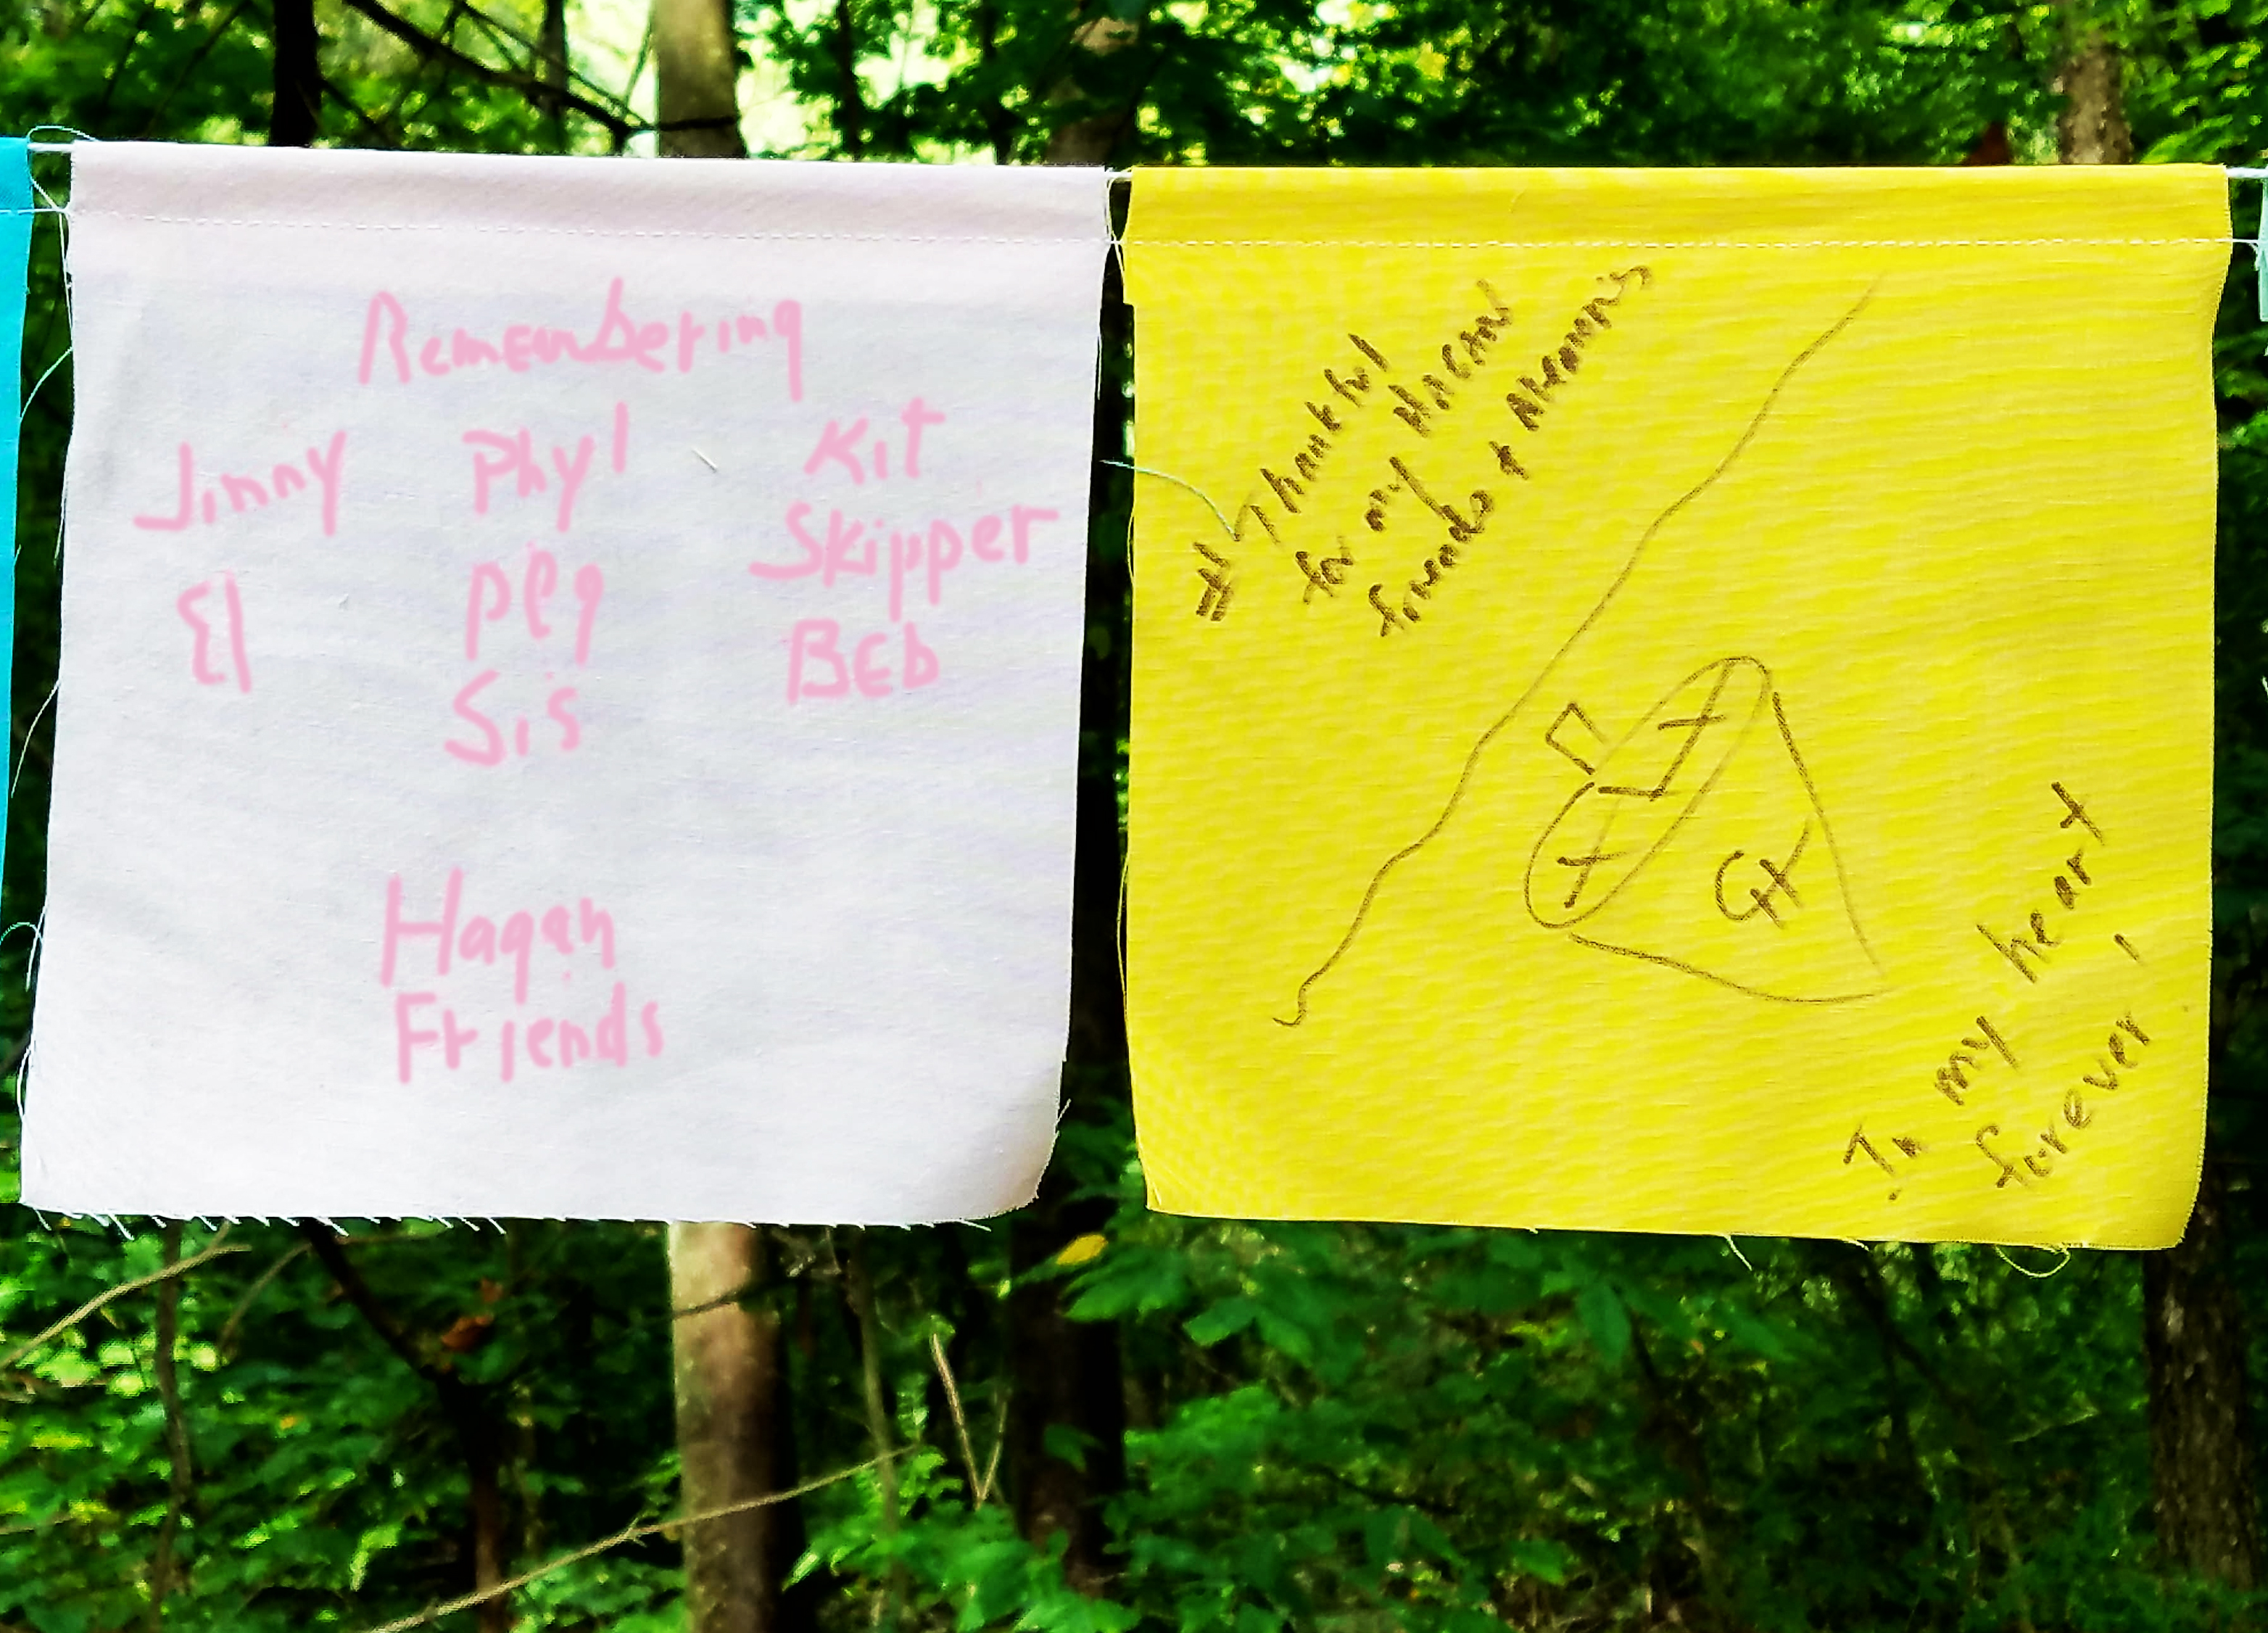 Remembering
Jinny Phyl Kit
El Peg Skipper
Sis BEb
Hagan
Friends
Thankful
for my HAGAN
friends + Memories
GH
In my heart
forever!